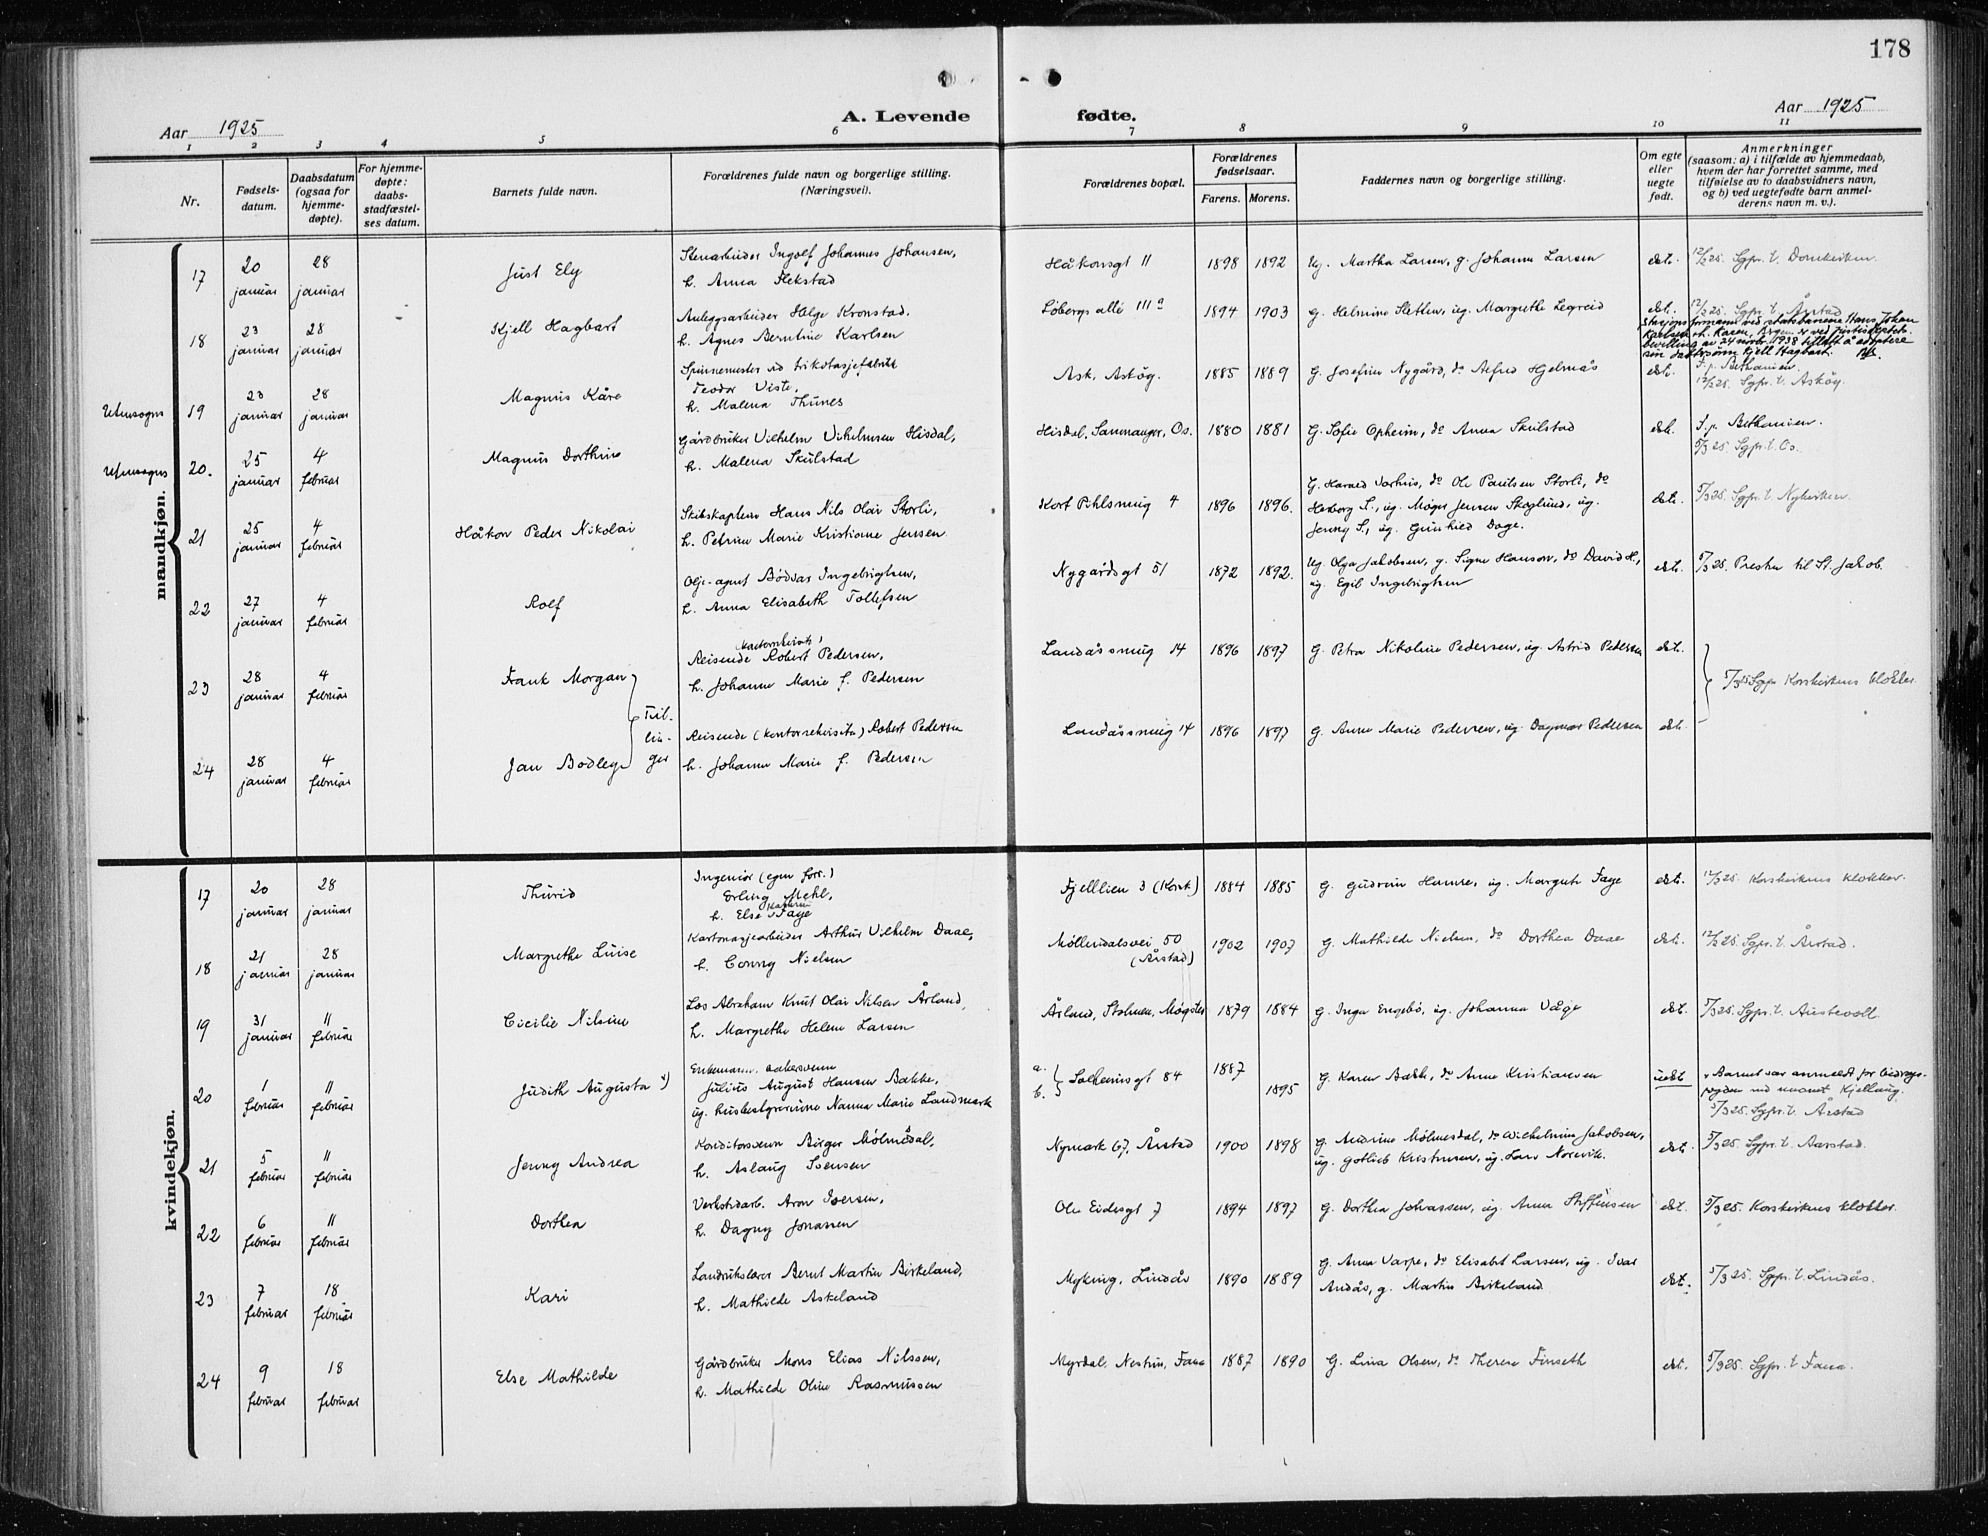 178
Aar 1925
A. Levende fødte.
Aar 1925
1 2 3 4 5 6 7 8 9 10 11
Nr.
Fødsels-
datum.
Daabsdatum
(ogsaa for
hjemme-
døpte).
For hjemme-
døpte:
daabs-
stadfæstel-
ses datum.
Barnets fulde navn.
Forældrenes fulde navn og borgerlige stilling.
(Næringsvei).
Forældrenes bopæl.
Forældrenes
fødselsaar.
Farens. Morens.
Faddernes navn og borgerlige stilling.
Om egte
eller
uegte
født.
Anmerkninger
(saasom: a) i tilfælde av hjemmedaab,
hvem der har forrettet samme, med
tilføielse av to daabsvidners navn,
og b) ved uegtefødte barn anmel-
derens navn m. v.).
mandkjøn.
17 20 januar 28 januar Just Ely
Stenarbeider Ingolf Johannes Johansen,
h. Anna Flekstad
Håkonsgt 11 1898 1892 Ug. Martha Larsen, g. Johanne Larsen ekt. 12/2 25. Sgpr. t. Domkirken.
18 23 januar 28 januar Kjell Hagbart
Anleggsarbeider Helge Kronstad,
h. Agnes Berntine Karlsen
Løbergs allé 111a 1894 1903 g. Helmine Sletten, ug. Margrethe Legreid ekt. 12/2 25. Sgpr. t. Årstad
Stasjonsformann ved statsbanene Hans Johan
Karlsen og h. Karen, Bergen er ved Justisdeptets
bevilling av 24 novbr. 1938 tillatt å adoptere
sin dattersønn Kjell Hagbart.
Utensogns 19 23 januar 28 januar Magnus Kåre
Spinnemester ved trikotasjefabrikk
Teodor Viste,
h. Malena Thunes
Ask, Askøy. 1885 1889 G. Josefine Nygård, do Alfred Hjelmås ekt. F. p. Bethanien.
12/2 25. Sgpr. t. Askøy.
Utensogns 20. 25 januar 4 februar Magnus Dorthius
Gårdbruker Vilhelm Vilhelmsen Hisdal,
h. Malena Skulstad
Hisdal, Samnanger, Os. 1880 1881 G. Sofie Opheim, do Anna Skulstad ekt. F. p. Bethanien.
5/3 25. Sgpr. t. Os.
21 25 januar 4 februar Håkon Peder Nikolai
Skibskaptein Hans Nils Olai Storli,
h. Petrine Marie Kristiane Jensen
Kort Pihlsmug 4 1896 1896. Herborg S., ug. Jensen Skoglund, ug.
Jenny S., ug. Gunhild Dage. ekt. 5/3 25. Sgpr. t. Nykirken.
22 27 januar 4 februar Rolf
Olje-agent Bødvar Ingebrigtsen,
h. Anna Elisabeth Tollefsen
Nygårdsgt 51 1872 1892. Ug. Olga Jakobsen, g. Signe Hanson, do David H.,
ug. Egil Ingebrigtsen ekt. 5/3 25. Presten til St. Jakob.
23 28 januar 4 februar Frank Morgan
Reisende Robert Pedersen,
h. Johanne Marie f. Pedersen
Landåssmug 14 1896 1897 G. Petra Nikoline Pedersen, ug. Astrid Pedersen ekt.
Tvil-
lin-
ger
5/3 25 Sgpr Korskirkens klokker.
24 28 januar 4 februar Jan Bodley
Reisende (kontorrekvisita) Robert Pedersen
h. Johanne Marie f. Pedersen
Landåssmug 14 1896 1897 G. Anne Marie Pedersen, ug. Dagmar Pedersen ekt.
kvindekjøn.
17 20 januar 28 januar Thurid
Ingeniør (egen forr.)
Erling Mehl,
h. Else Faye
Fjellien 3 (Kork) 1884 1885 G. Gudrun Hanne, ug. Margit Faye ekt. 12/2 25. Korskirkens klokker.
18 21 januar 28 januar Margrethe Luise
Kartonnasjearbeider Arthur Vilhelm Daae,
h. Conny Nielsen
Møllendalsvei 50
(Årstad) 1902 1907 G. Mathilde Nielsen, do Dorthea Daae ekt. 12/2 25. Sgpr. t. Årstad.
19 31 januar 11 februar Cicilie Nilsine
Los Abraham Knut Olai Nilsen Årland,
h. Margrethe Helene Larsen
Årland, Stolmen, Møgster 1879 1884 G. Inga Engebø, ug. Johanna Våge ekt. 5/3 25. Sgpr. t. Austevoll.
20 1 februar 11 februar Judith Augusta x)
Enkemann,
Julius August Hansen Bakke,
ug. husbestyrerinne Nanna Marie Landmark
a.
b. Solheimsgt 84 1887 1895 G. Karen Bakke, do Anne Kristiansen uekt. x Barnet var anmeldt for bidrags-
fogden med navnet Kjellaug.
5/3 25. Sgpr. t. Årstad
21 5 februar 11 februar Jenny Andrea
Konditorsvenn Birger Mølmesdal,
h. Aslaug Svensen
Nymark 67, Årstad 1900 1898 G. Andrine Mølmesdal, do Wilhelmine Jakobsen,
ug. Gotlieb Kristensen, ug. Lars Norevik. ekt. 5/3 25. Sgpr. t. Aarstad.
22 6 februar 11 februar Dorthea
Verkstedarb. Aron Iversen,
h. Dagny Jonassen
Ole Eidesgt 7 1894 1897 G. Dorthea Johassen, ug. Anna Steffensen ekt. 5/3 25. Korskirkens klokker.
23 7 februar 18 februar Kari
Landbrukslærer Bernt Martin Birkeland,
h. Mathilde Askeland
Myking, Lindås 1890 1889 G. Anna Varpe, do Elisabet Larsen, ug. Ivar
Andås, g. Martin Birkeland ekt. 5/3 25. Sgpr. t. Lindås.
24 9 februar 18 februar Else Mathilde
Gårdbruker Mons Elias Nilssen,
h. Mathilde Oline Rasmussen
Myrdal, Nestun, Fana 1887 1890 G. Lina Olsen, do Therese Finseth ekt. 5/3 25. Sgpr. t. Fana.